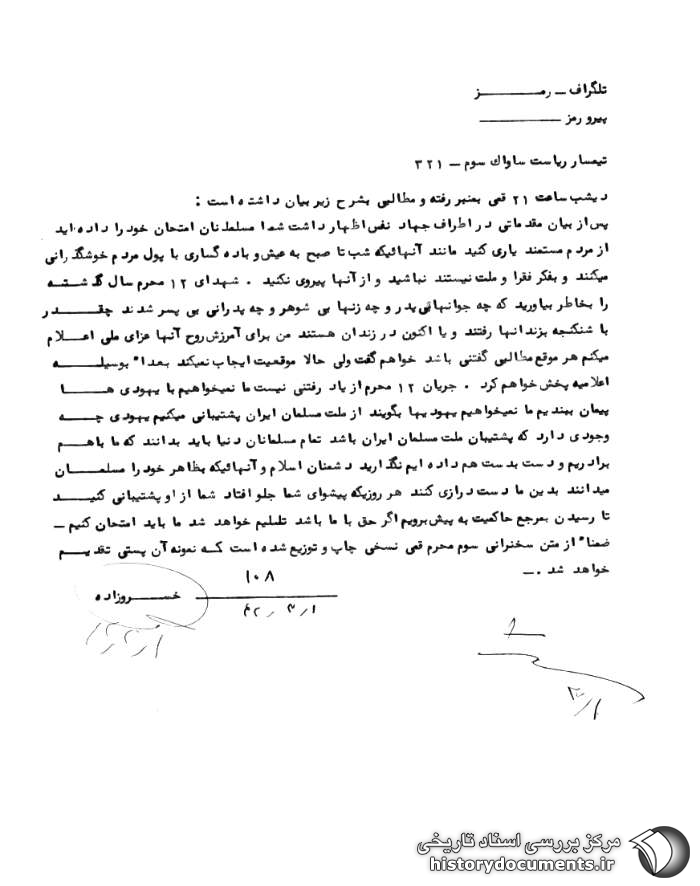 تلگراف ـ رمـــــــز
پیرو رمز
تیمسار ریاست ساواك سوم ـ ۳۲۱
دیشب ساعت ۲۱ قمی بمنبر رفته و مطالبی بشرح زیر بیان داشته است :
پس از بیان مقدماتی در اطراف جهاد نفس اظهار داشت شما مسلمانان امتحان خود را داده اید
از مردم مستمند یاری کنید مانند آنهائیکه شب تا صبح به عیش و باده گساری با پول مردم خوشگذرانی
میکنند و بفکر فقرا و ملت نیستند نباشید و از آنها پیروی نکنید . شهدای ۱۲ محرم سال گذشتـه
را بخاطر بیاورید که چه جوانهائی پدر و چه زنها بی شوهر و چه پدرانی بی پسر شدند چقــدر
با شنکنجه بزندانها رفتند و یا اکنون در زندان هستند من برای آمرزش روح آنها عزای ملی اعـلام
میکنم هر موقع مطالبی گفتنی باشد خواهم گفت ولی حالا موقعیت ایجاب نمیکند بعداً بوسیلــه
اعلامیه پخش خواهم کرد . جریان ۱۲ محرم از یاد رفتنی نیست ما نمیخواهیم با یهودی هــا
پیمان ببندیم ما نمیخواهیم یهودیها بگویند از ملت مسلمان ایران پشتیبانی میکنیم یهودی چــه
وجودی دارد که پشتیبان ملت مسلمان ایران باشد تمام مسلمانان دنیا باید بدانند که ما باهــم
برادریم و دست بدست هم داده ایم نگذارید دشمنان اسلام و آنهائیکه بظاهر خود را مسلمــان
میدانند بدین ما دست درازی کنند هر روزیکه پیشوای شما جلو افتاد شما از او پشتیبانی کنیــد
تا رسیدن بمرجع حاکمیت به پیش برویم اگر حق با ما باشد تسلیم خواهد شد ما باید امتحان کنیم ـ
ضمناً از متن سخنرانی سوم محرم قمی نسخی چاپ و توزیع شده است کـه نمونه آن پستی تقدیــم
خواهد شد .ـ
۱۰۸
خســروزاده
۴۳٫۳٫۱
۳٫۱
مرکز بررسی اسناد تاریخی
historydocuments.ir